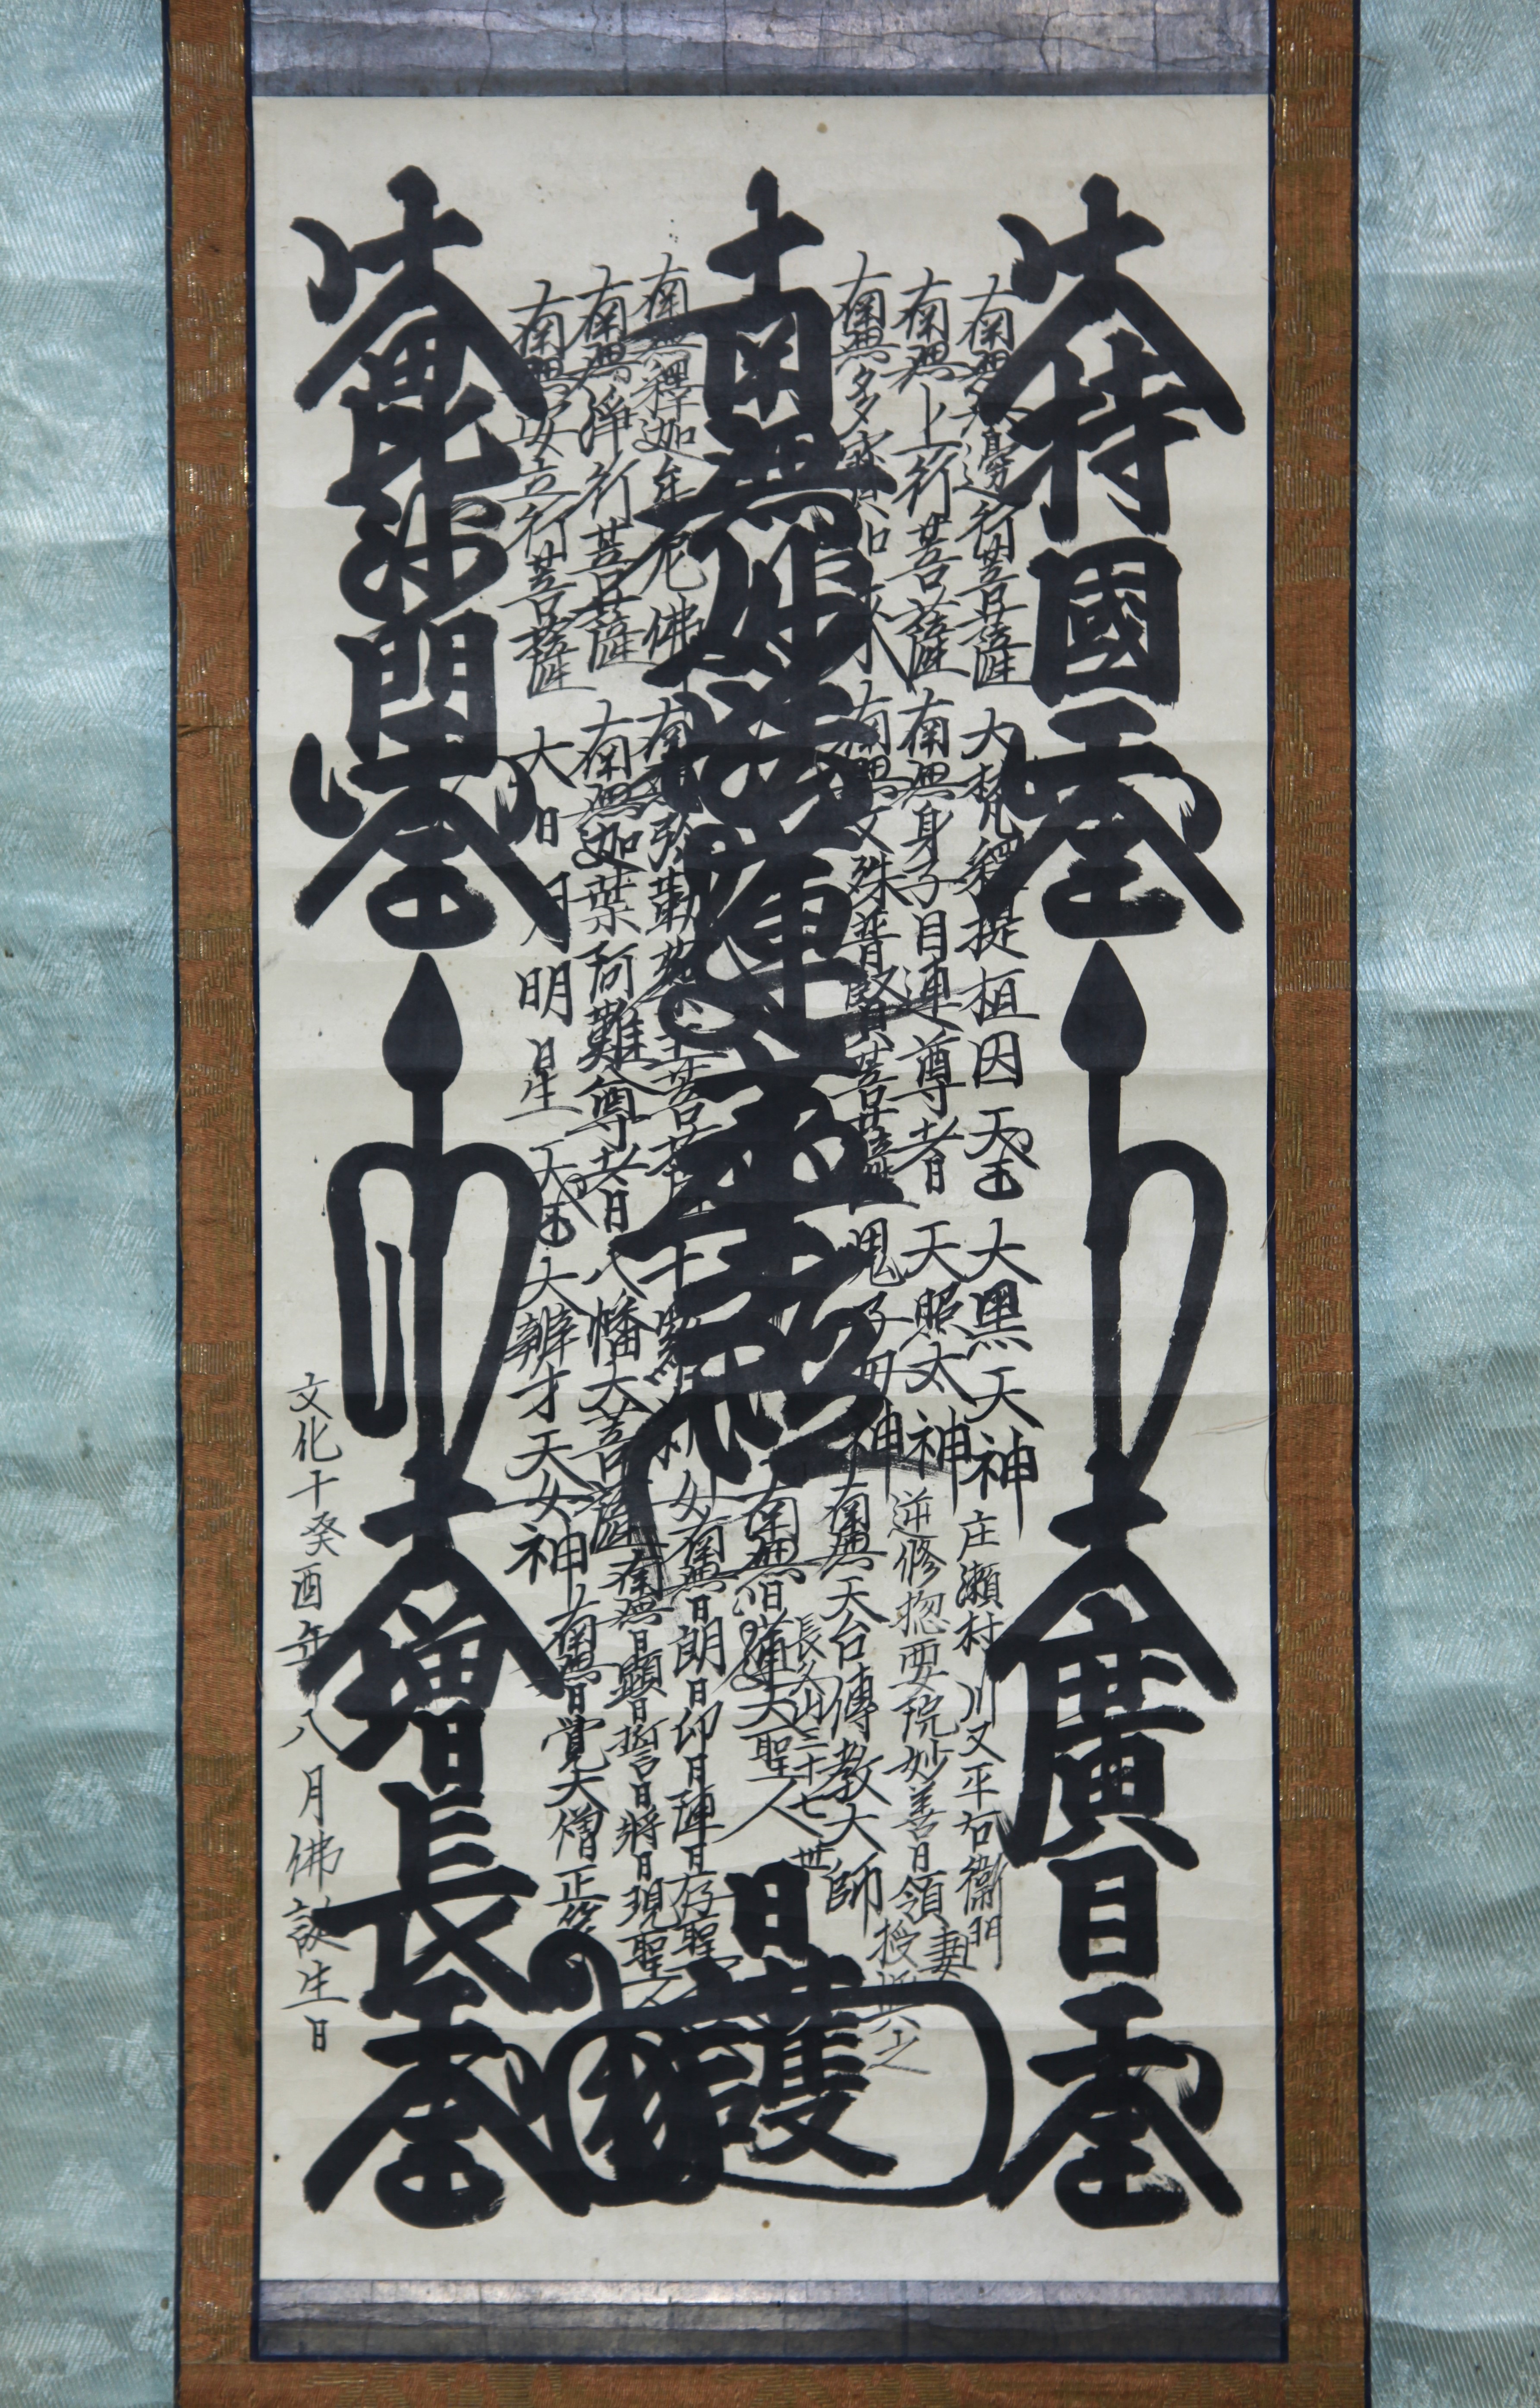 大持國天王
南無無邊行菩薩
大梵釋提桓因天王
大黒天神
庄瀬村川又平右衞門
妻
南無上行菩薩
南無身子目連尊者
天照太神
逆修揔要院妙善日領
授與之
南無多寳如来
南無文殊普賢菩薩
鬼子母神
南無天台傳教大師
南無妙法蓮華経
南無日蓮大聖人
長久山三十七世
日護
南無釋迦牟尼佛
南無弥勒薬王菩薩
十羅刹女
南無日朗日印日陣日存聖
南無淨行菩薩
南無迦葉阿難尊者
八幡大菩薩
南無日顕日誓日將日現聖人
南無安立行菩薩
大日月明星天王
大辨才天女神
南無日覺大僧正等
大毗沙門天王
大廣目天王
大増長天王
文化十癸酉年八月佛誕生日